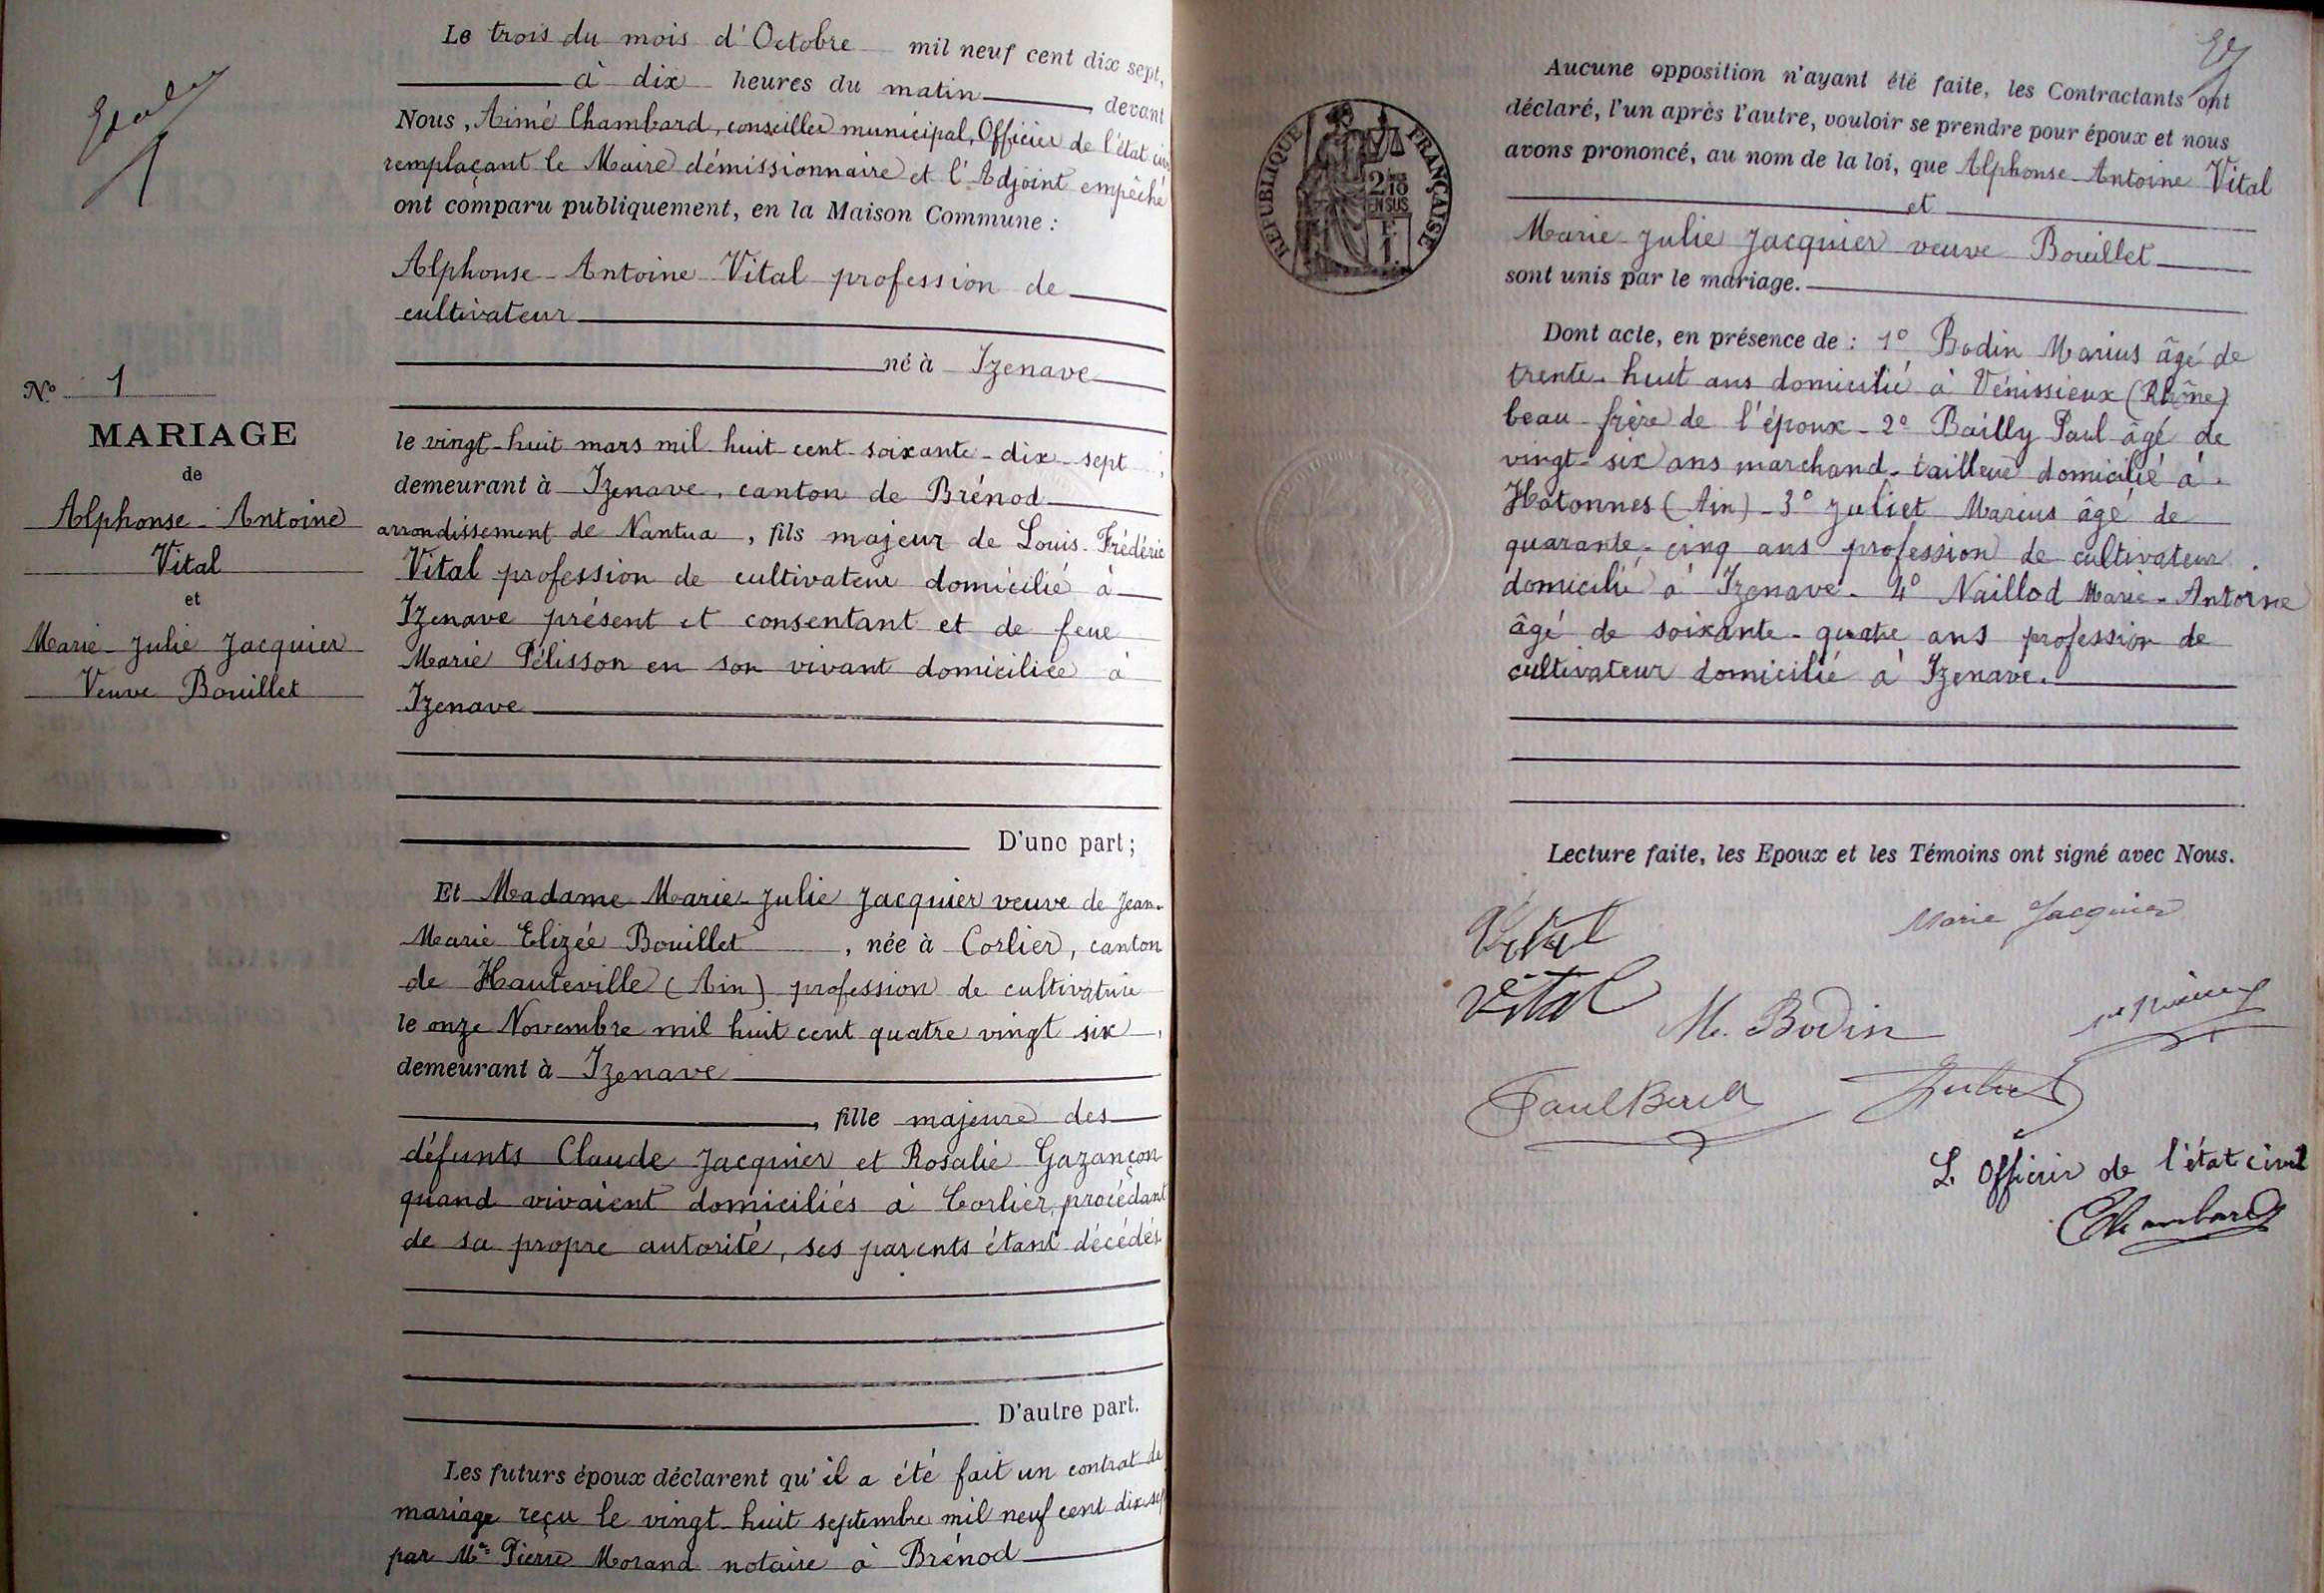 Le trois du mois d'Octobre mil neuf cent dix sept,
à dix heures du matin, devant
Nous, Aimé Chambard, conseiller municipal, Officier de l'état civil
remplaçant le Maire démissionnaire et l'Adjoint empêché
ont comparu publiquement, en la Maison Commune :
Alphonse-Antoine Vital profession de
cultivateur
né à Izenave
le vingt-huit mars mil huit cent soixante-dix-sept,
demeurant à Izenave, canton de Brénod
arrondissement de Nantua, fils majeur de Louis-Frédéric
Vital profession de cultivateur domicilié à
Izenave présent et consentant et de feue
Marie Pélisson en son vivant domiciliée à
Izenave
D'une part;
Et Madame Marie-Julie Jacquier veuve de Jean-
Marie Elizée Bouillet, née à Corlier, canton
de Hauteville (Ain) profession de cultivatrice
le onze Novembre mil huit cent quatre vingt six,
demeurant à Izenave
, fille majeure des
défunts Claude Jacquier et Rosalie Gazançon
quand vivaient domiciliés à Corlier, procédant
de sa propre autorité, ses parents étant décédés
D'autre part.
Les futurs époux déclarent qu'il a été fait un contrat de
mariage reçu le vingt-huit septembre mil neuf cent dix sept
par Me Pierre Morand notaire à Brénod
No 1
MARIAGE
de
Alphonse-Antoine
Vital
et
Marie-Julie Jacquier
Veuve Bouillet
RÉPUBLIQUE FRANÇAISE
2/10
EN SUS
F.
1.
Aucune opposition n'ayant été faite, les Contractants ont
déclaré, l'un après l'autre, vouloir se prendre pour époux et nous
avons prononcé, au nom de la loi, que Alphonse-Antoine Vital
et
Marie-Julie Jacquier veuve Bouillet
sont unis par le mariage.
Dont acte, en présence de : 1° Bodin Marius âgé de
trente-huit ans domicilié à Vénissieux (Rhône)
beau-frère de l'époux - 2° Bailly Paul âgé de
vingt-six ans marchand-tailleur domicilié à
Hotonnes (Ain) - 3° Juliet Marius âgé de
quarante-cinq ans profession de cultivateur
domicilié à Izenave - 4° Naillod Marie-Antoine
âgé de soixante-quatre ans profession de
cultivateur domicilié à Izenave.
Lecture faite, les Epoux et les Témoins ont signé avec Nous.
Vital
Marie Jacquier
Vital
M. Bodin
Paul
Juliet
L'Officier de l'état civil
Chambard